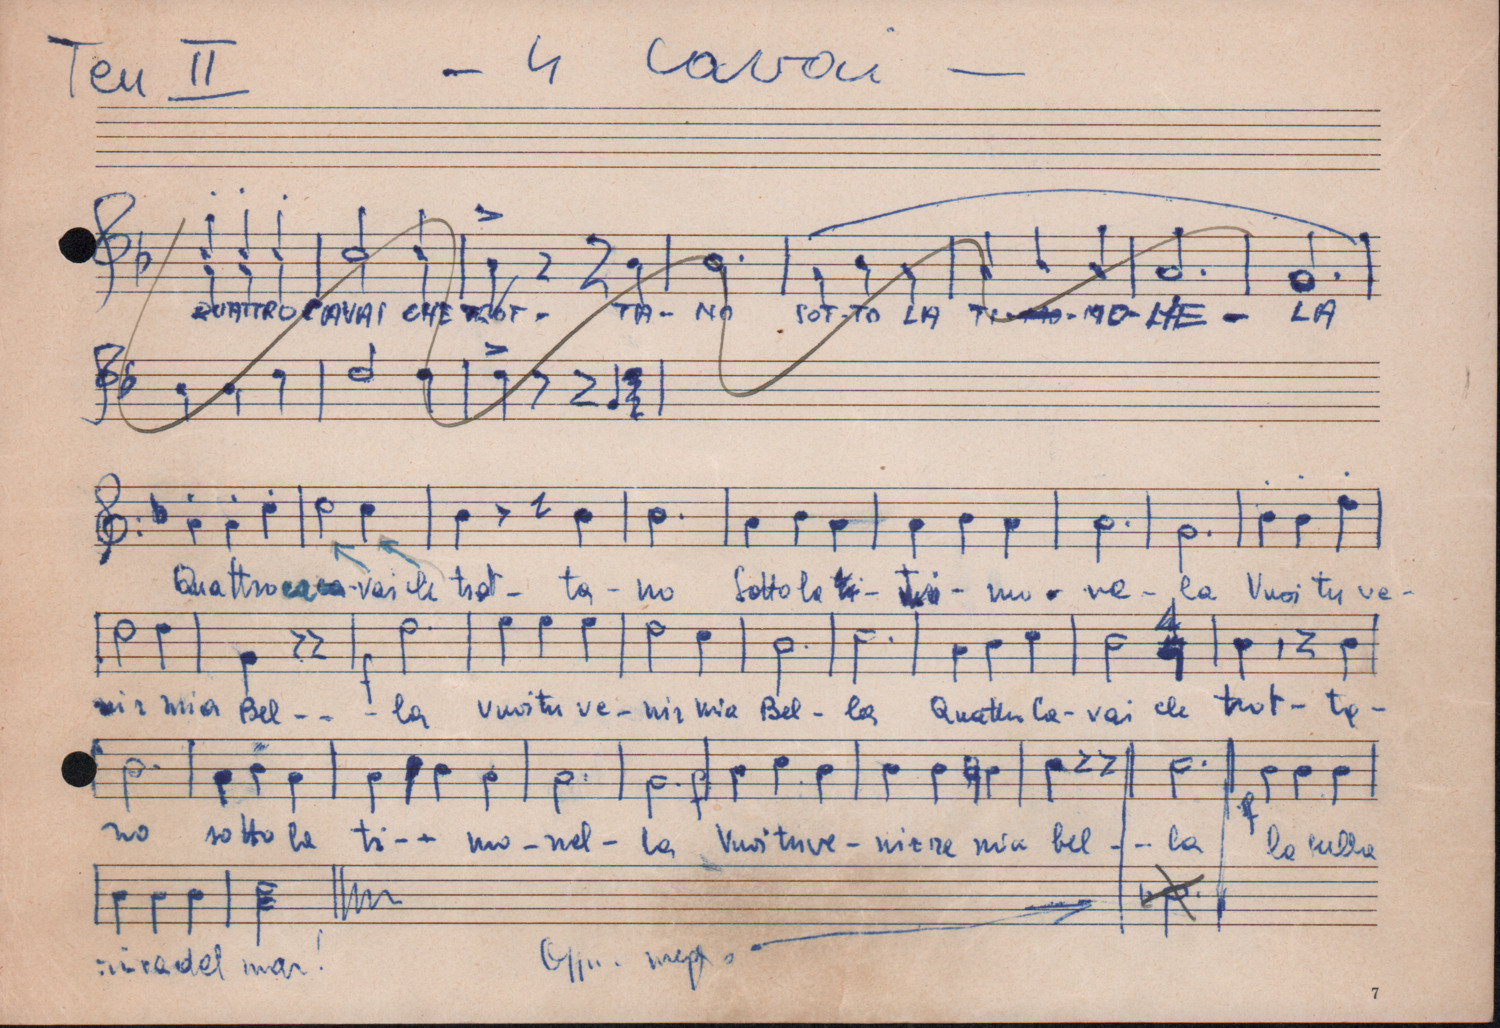 Ten II - 4 Cavai -
QUATTRO CAVAI CHE TROT - TA - NO SOT - TO LA TI - MO - NE - LA
Quattro ca - vai che trot - ta - no Sotto la ti - mo - ne - la Vuoi tu ve -
nir mia Bel - - - la vuoi tu ve - nir mia Bel - la Quattro Ca - vai che trot - ta -
no sotto la ti - - mo - nel - la Vuoi tu ve - nire mia bel - - la la sulla
riva del mar!
7